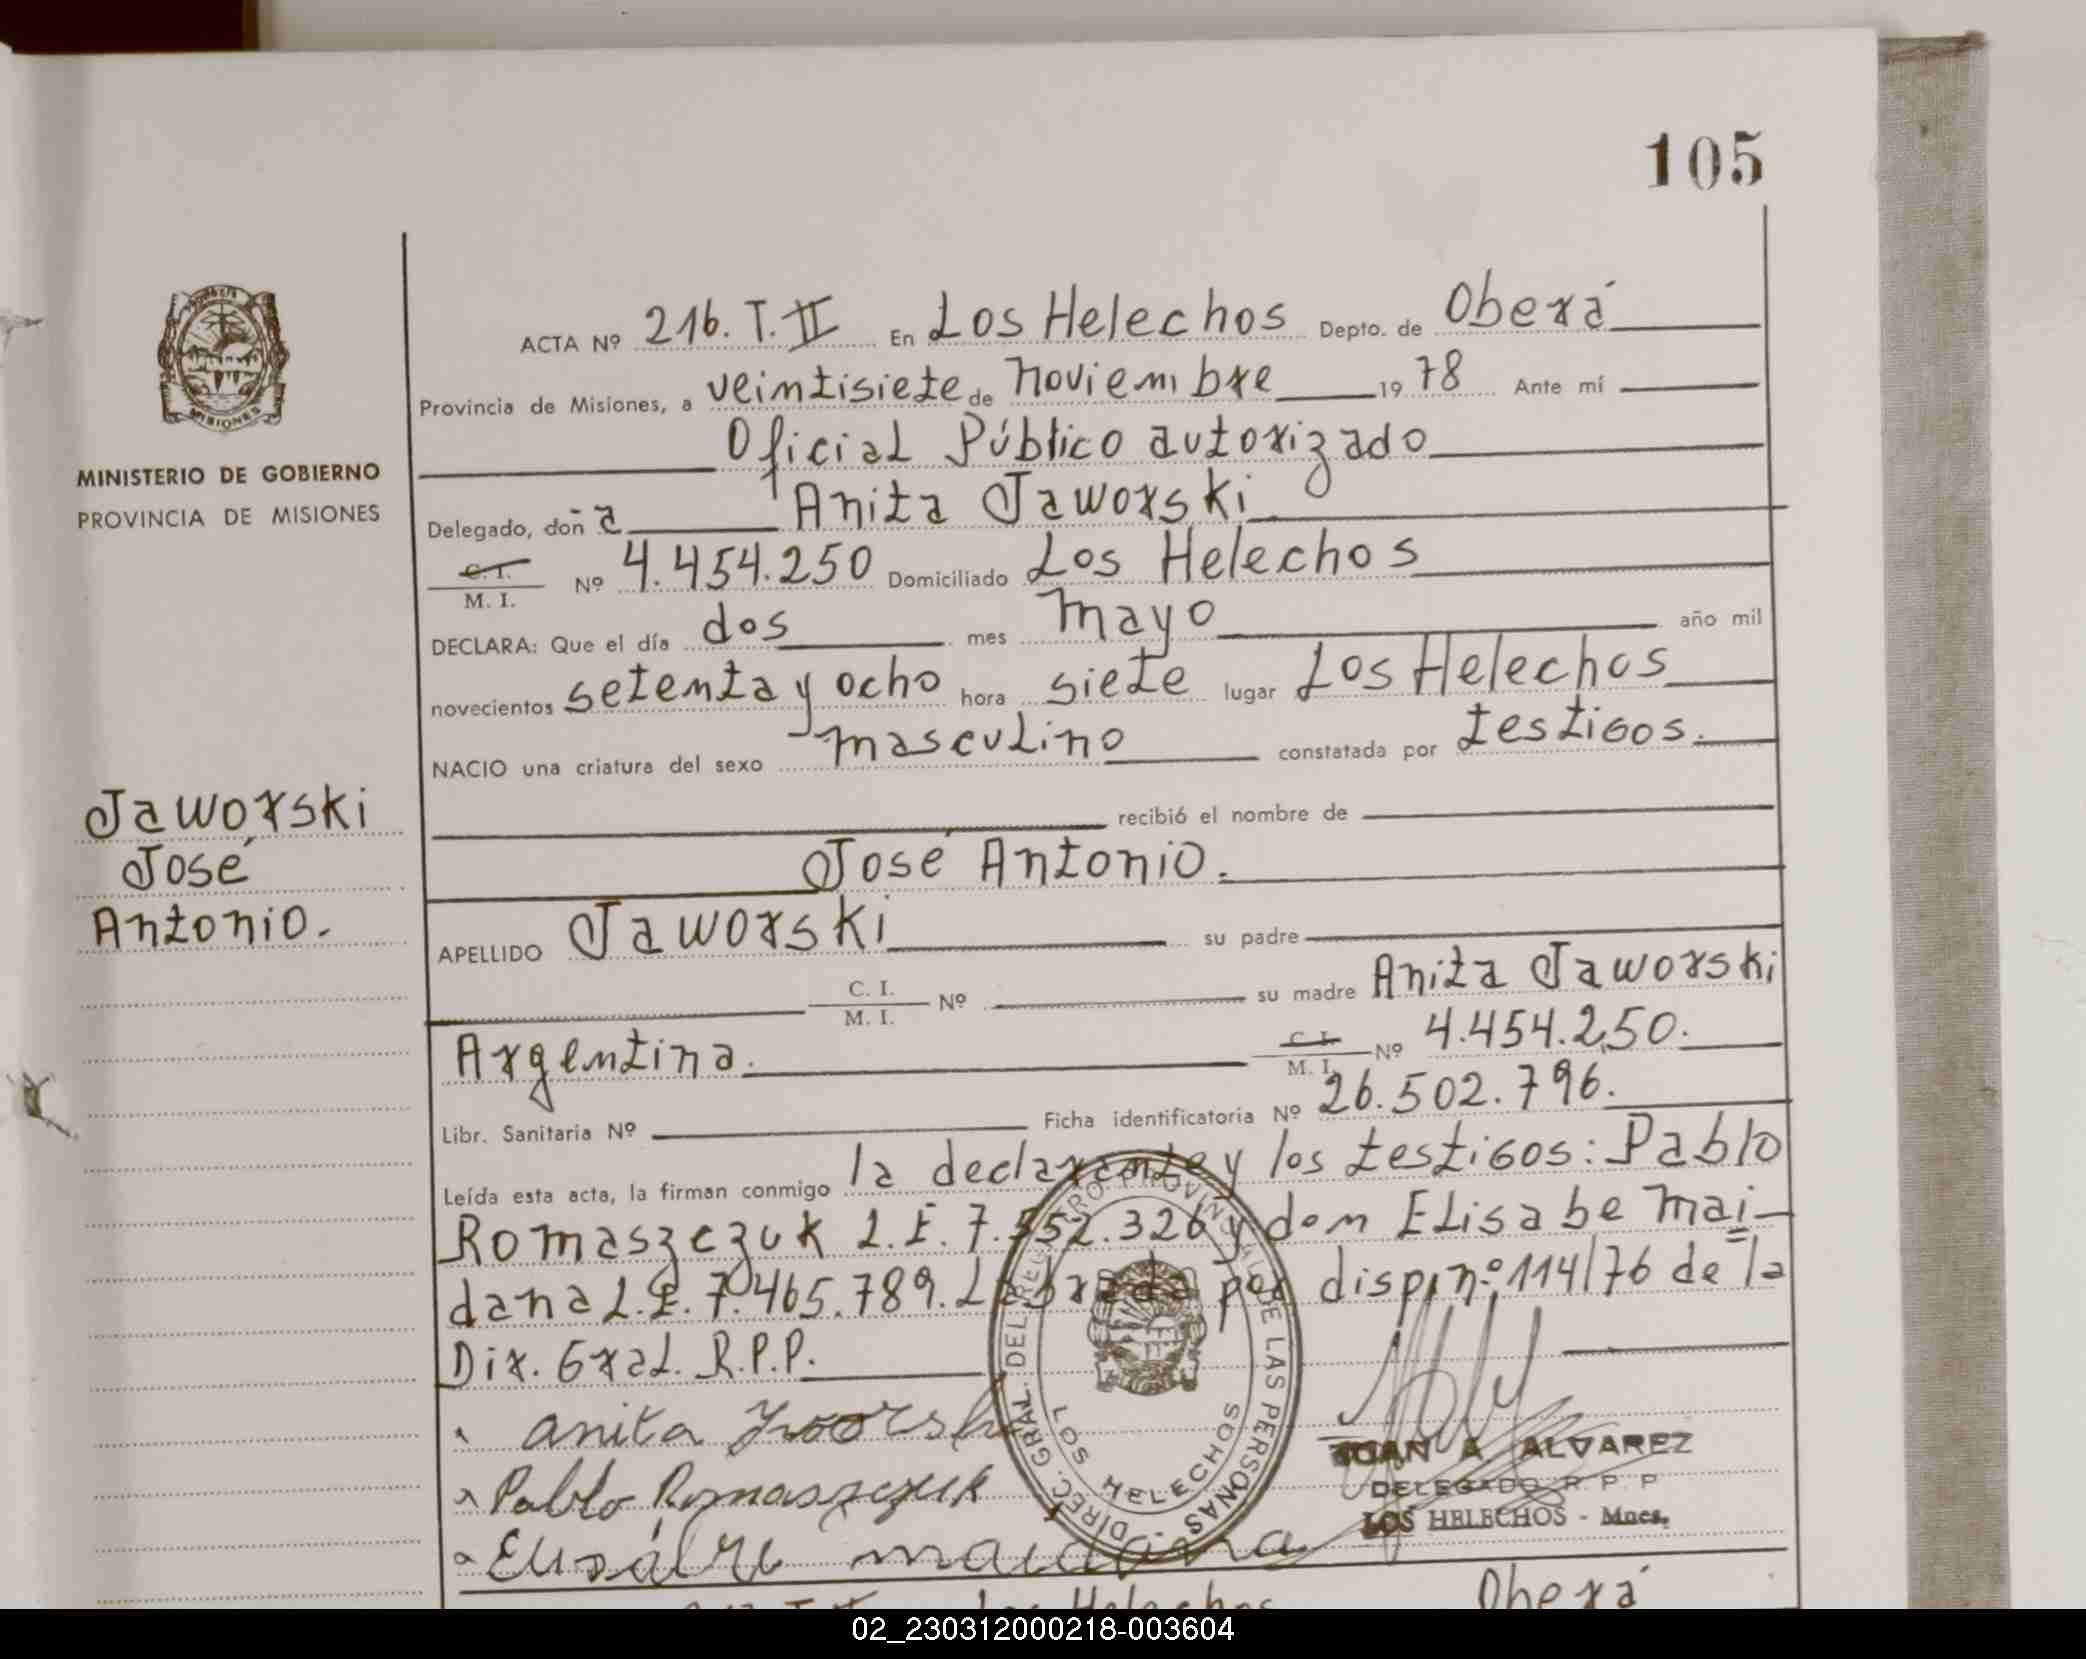 105
MISIONES
MINISTERIO DE GOBIERNO
PROVINCIA DE MISIONES
Jaworski
José
Antonio.
ACTA Nº 216. T. II En Los Helechos Depto. de Oberá
Provincia de Misiones, a veintisiete de noviembre 19 78 Ante mí
Oficial Público autorizado
Delegado, doña Anita Jaworski
C. I.
M. I. Nº 4.454.250 Domiciliado Los Helechos
DECLARA: Que el día dos mes mayo año mil
novecientos setenta y ocho hora siete lugar Los Helechos
NACIO una criatura del sexo masculino constatada por testigos.
recibió el nombre de
José Antonio.
APELLIDO Jaworski su padre
C. I.
M. I. Nº su madre Anita Jaworski
Argentina. C. I.
M. I. Nº 4.454.250.
Libr. Sanitaria Nº Ficha identificatoria Nº 26.502.796.
Leída esta acta, la firman conmigo la declarante y los testigos: Pablo
Romaszczuk L.E. 7.552.326 y don Elisabe Mai-
dana L.E. 7.465.789. Labrada por disp. nº 114/76 de la
Dir. Gral. R.P.P.
Anita
Pablo Romaszczuk
maidana
DIREC. GRAL. DEL REGISTRO PROVINCIAL DE LAS PERSONAS -
LOS HELECHOS
JUAN A ALVAREZ
DELEGADO R. P. P
LOS HELECHOS - Mnes.
Los Helechos Oberá
02_230312000218-003604